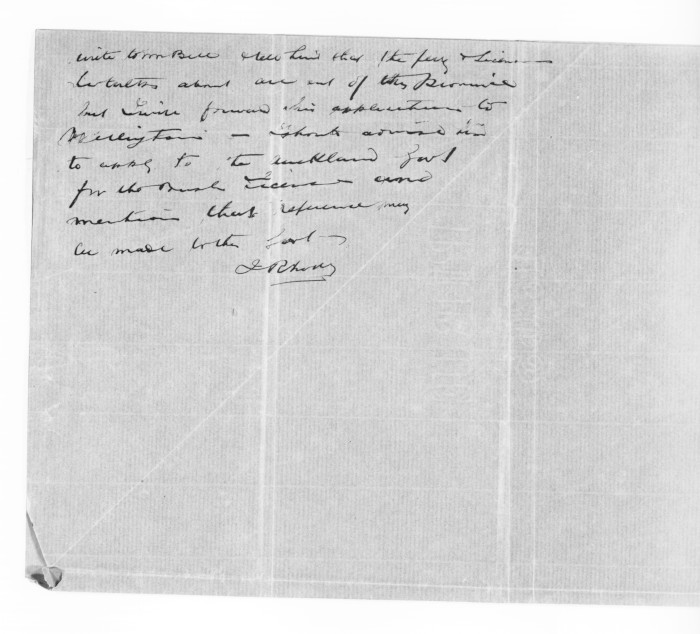 write to Mr Bell & tell him that the ferry & License
he talks about are out of this Province
but I will forward his application to
Wellington — I should advise him
to apply to the Auckland Govt
for the Bush License and
mention that reference may
be made to the Govt